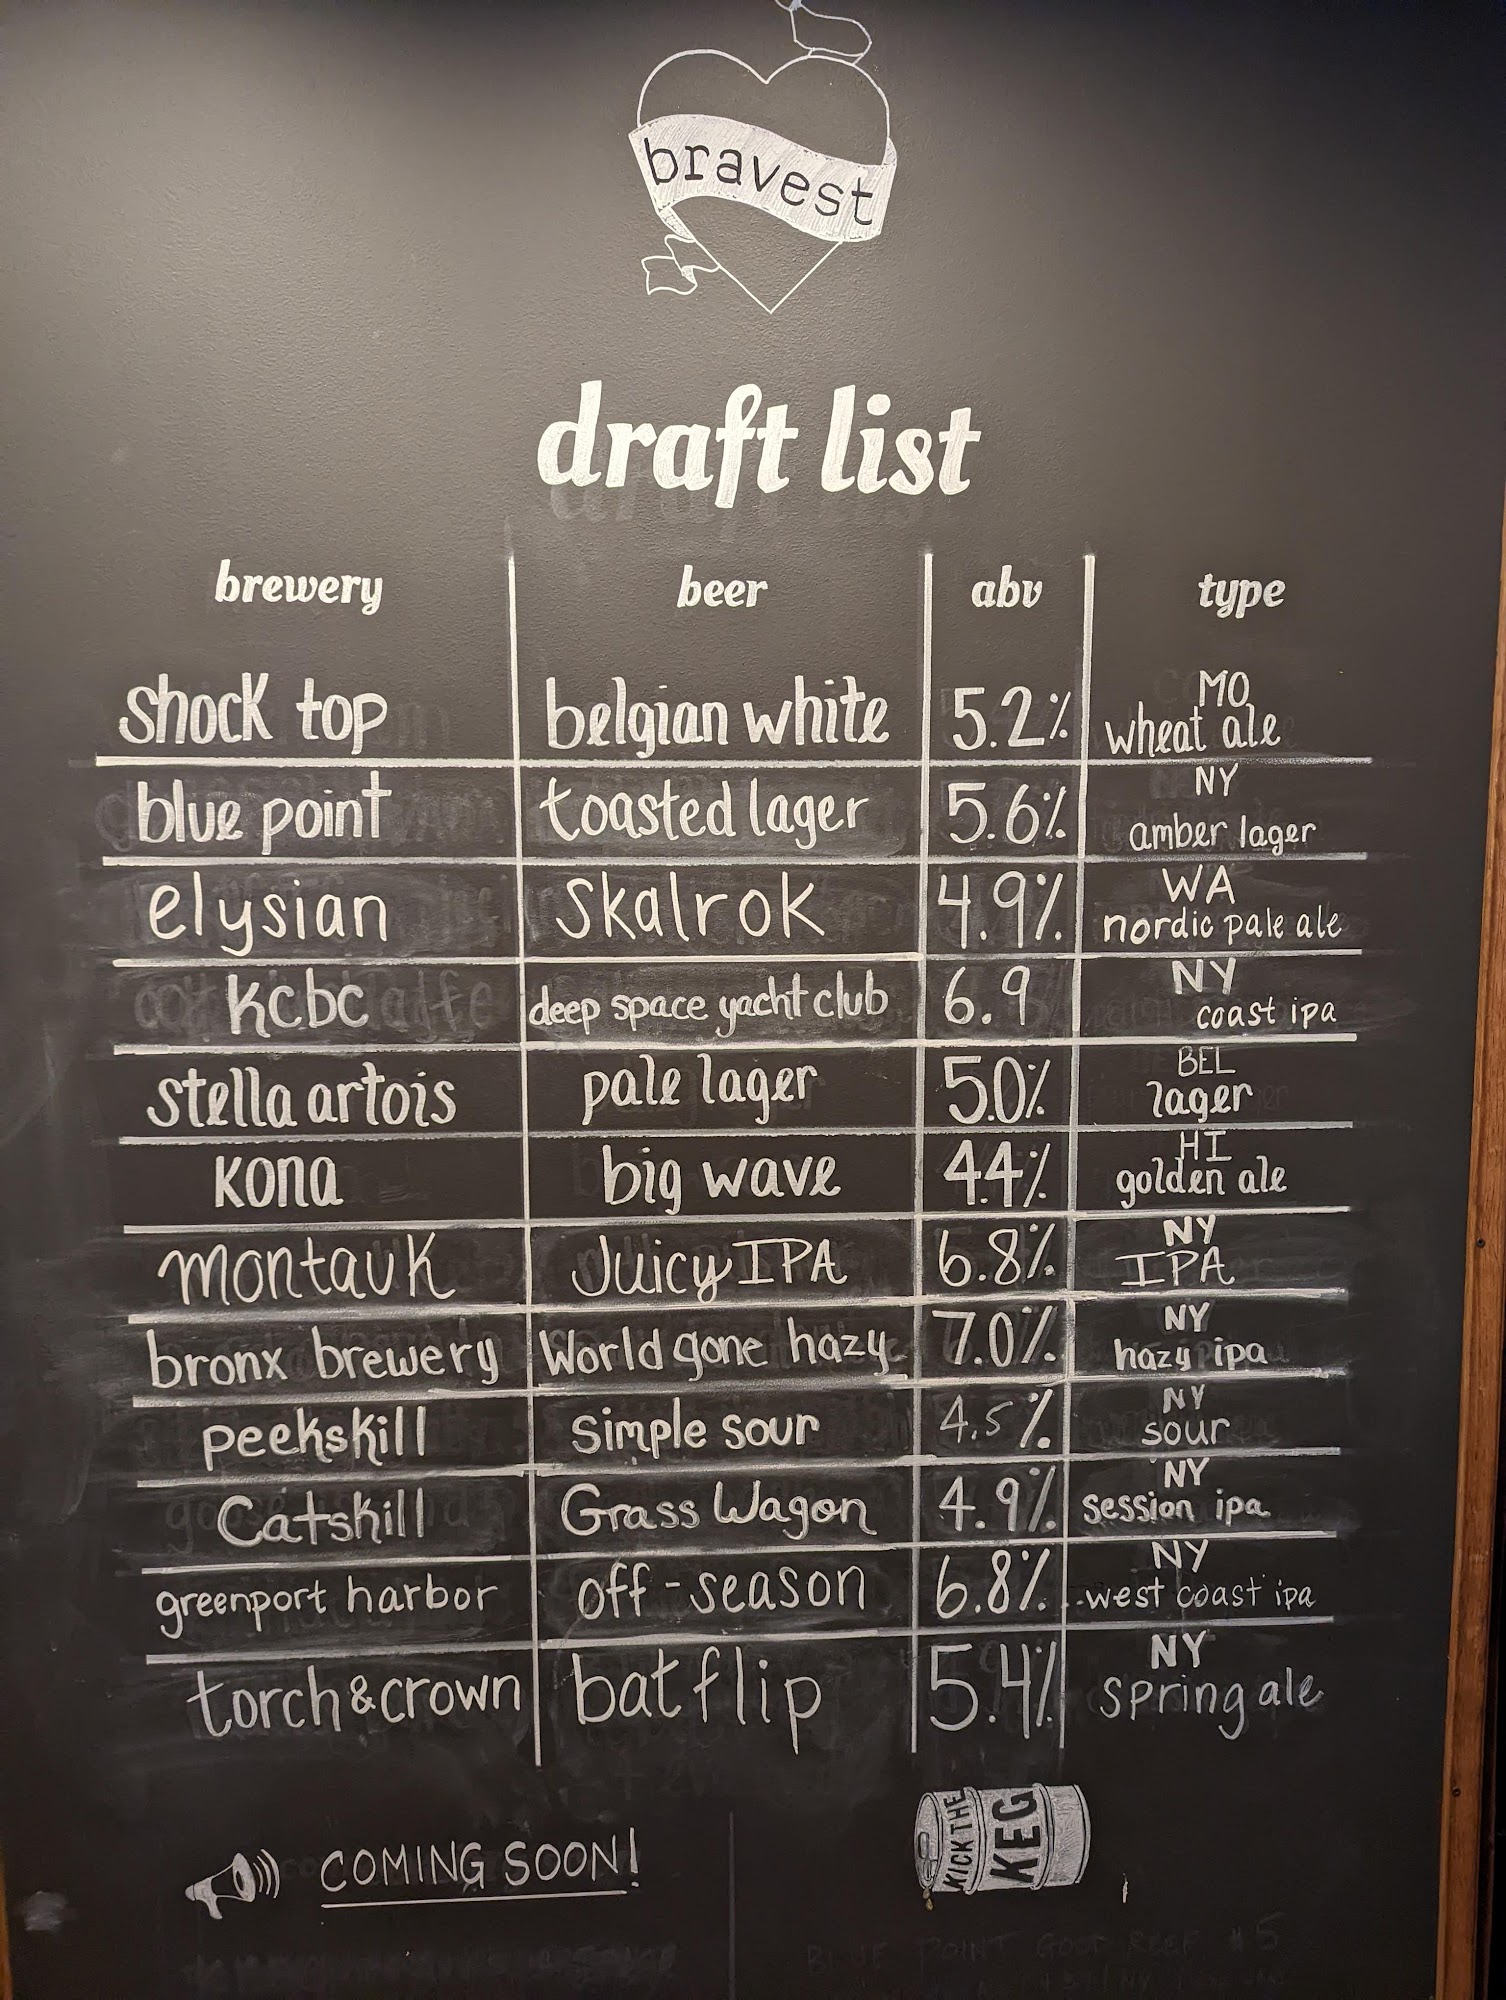 bravest
draft list
brewery beer abv type
shock top belgian white 5.2% MO wheat ale
blue point toasted lager 5.6% NY amber lager
elysian skalrok 4.9% WA nordic pale ale
kcbc deep space yacht club 6.9 NY coast ipa
stella artois pale lager 5.0% BEL lager
kona big wave 4.4% HI golden ale
montauk Juicy IPA 6.8% NY IPA
bronx brewery World gone hazy 7.0% NY hazy ipa
peekskill simple sour 4.5% NY sour
Catskill Grass Wagon 4.9% NY session ipa
greenport harbor off-season 6.8% NY west coast ipa
torch & crown bat flip 5.4% NY spring ale
COMING SOON!
KICK THE
KEG
BLUE POINT